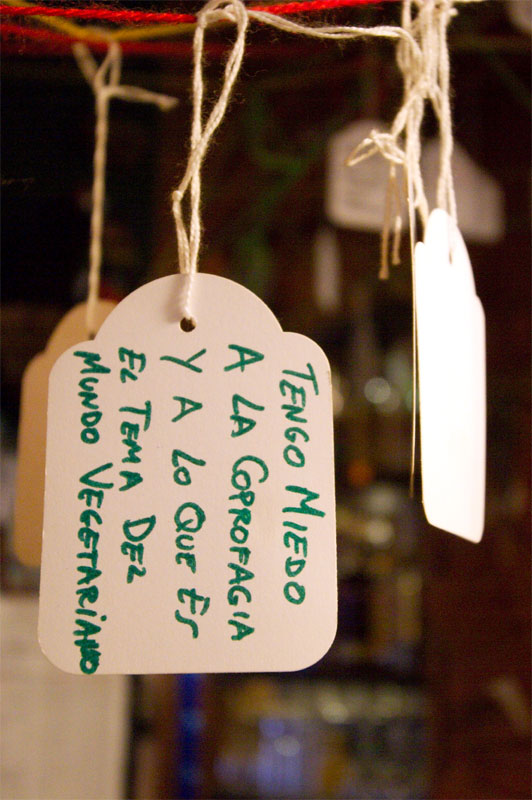 TENGO MIEDO
A LA COPROFAGIA
Y A LO QUE ES
EL TEMA DEL
MUNDO VEGETARIANO